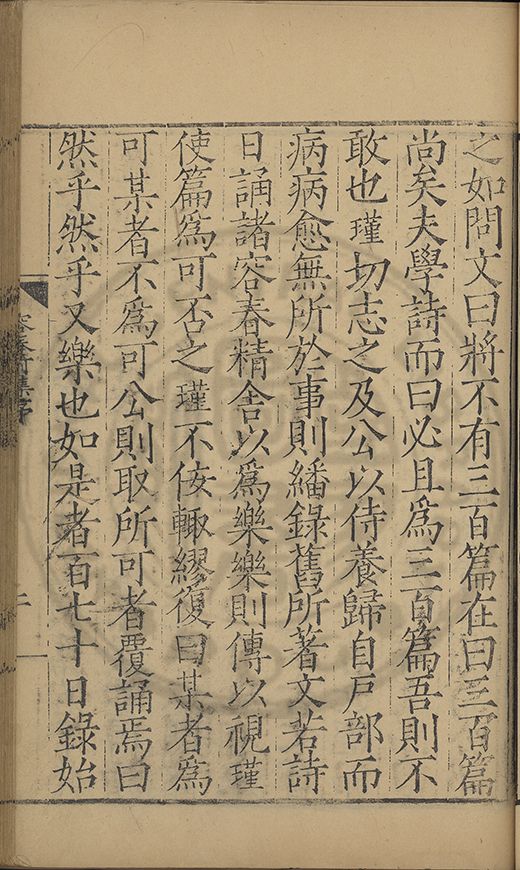 之如問文曰將不有三百篇在曰三百篇
尚矣夫學詩而曰必且爲三百篇吾則不
敢也瑾切志之及公以侍養歸自戶部而
病病愈無所於事則繙錄舊所著文若詩
日誦諸容春精舍以爲樂樂則傳以視瑾
使篇爲可否之瑾不佞輙繆復曰某者爲
可某者不爲可公則取所可者覆誦焉曰
然乎然乎又樂也如是者百七十日錄始
容春前集序
二